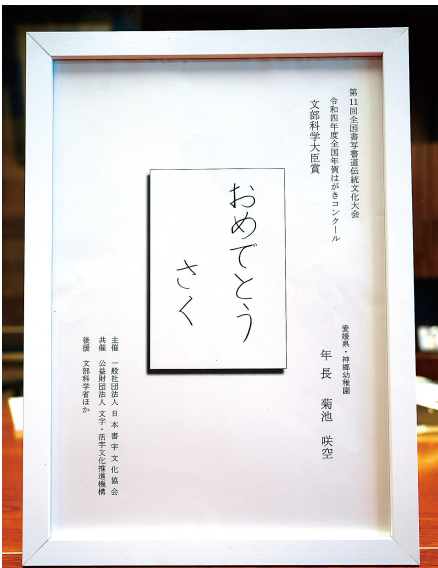 第11回全国書写書道伝統文化大会
令和四年度全国年賀はがきコンクール
文部科学大臣賞
おめでとう
さく
愛媛県・神郷幼稚園
年長 菊池 咲空
主催 一般社団法人 日本書字文化協会
共催 公益財団法人 文字・活字文化推進機構
後援 文部科学省ほか